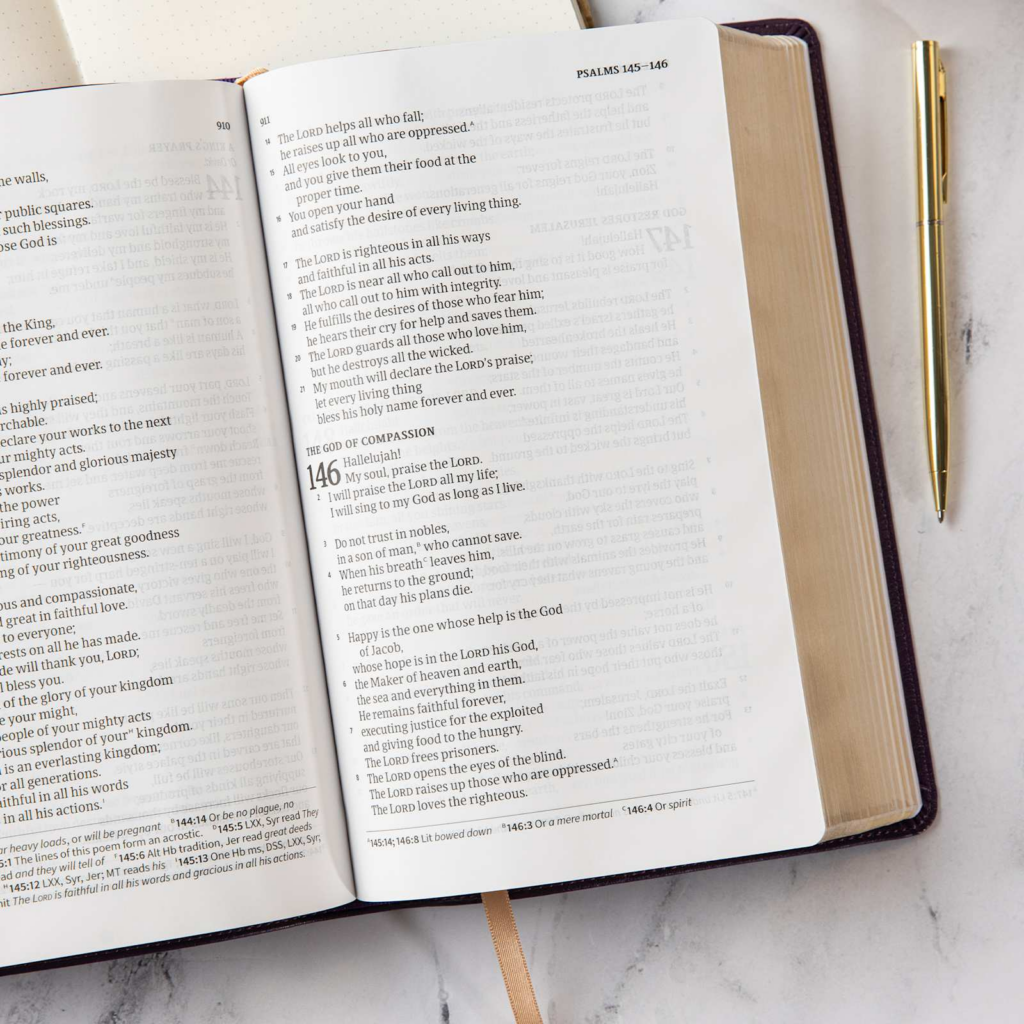 910
he walls,
r public squares.
such blessings.
ose God is
the King,
e forever and ever.
y;
forever and ever.
is highly praised;
rchable.
eclare your works to the next
ur mighty acts.
splendor and glorious majesty
s works.
the power
iring acts,
our greatness.ᶠ
timony of your great goodness
ng of your righteousness.
ous and compassionate,
d great in faithful love.
to everyone;
rests on all he has made.
de will thank you, LORD;
l bless you.
of the glory of your kingdom
e your might,
eople of your mighty acts
rious splendor of yourᴴ kingdom.
is an everlasting kingdom;
or all generations.
aithful in all his words
in all his actions.ᴵ
ar heavy loads, or will be pregnant ᴮ144:14 Or be no plague, no
5:1 The lines of this poem form an acrostic. ᴰ145:5 LXX, Syr read They
ad and they will tell of ᶠ145:6 Alt Hb tradition, Jer read great deeds
ᴴ145:12 LXX, Syr, Jer; MT reads his ᴵ145:13 One Hb ms, DSS, LXX, Syr;
it The LORD is faithful in all his words and gracious in all his actions.
911
PSALMS 145–146
14 The LORD helps all who fall;
he raises up all who are oppressed.ᴬ
15 All eyes look to you,
and you give them their food at the
proper time.
16 You open your hand
and satisfy the desire of every living thing.
17 The LORD is righteous in all his ways
and faithful in all his acts.
18 The LORD is near all who call out to him,
all who call out to him with integrity.
19 He fulfills the desires of those who fear him;
he hears their cry for help and saves them.
20 The LORD guards all those who love him,
but he destroys all the wicked.
21 My mouth will declare the LORD's praise;
let every living thing
bless his holy name forever and ever.
THE GOD OF COMPASSION
146 Hallelujah!
My soul, praise the LORD.
2 I will praise the LORD all my life;
I will sing to my God as long as I live.
3 Do not trust in nobles,
in a son of man,ᴮ who cannot save.
4 When his breathᶜ leaves him,
he returns to the ground;
on that day his plans die.
5 Happy is the one whose help is the God
of Jacob,
whose hope is in the LORD his God,
6 the Maker of heaven and earth,
the sea and everything in them.
He remains faithful forever,
7 executing justice for the exploited
and giving food to the hungry.
The LORD frees prisoners.
8 The LORD opens the eyes of the blind.
The LORD raises up those who are oppressed.ᴬ
The LORD loves the righteous.
ᴬ145:14; 146:8 Lit bowed down ᴮ146:3 Or a mere mortal ᶜ146:4 Or spirit